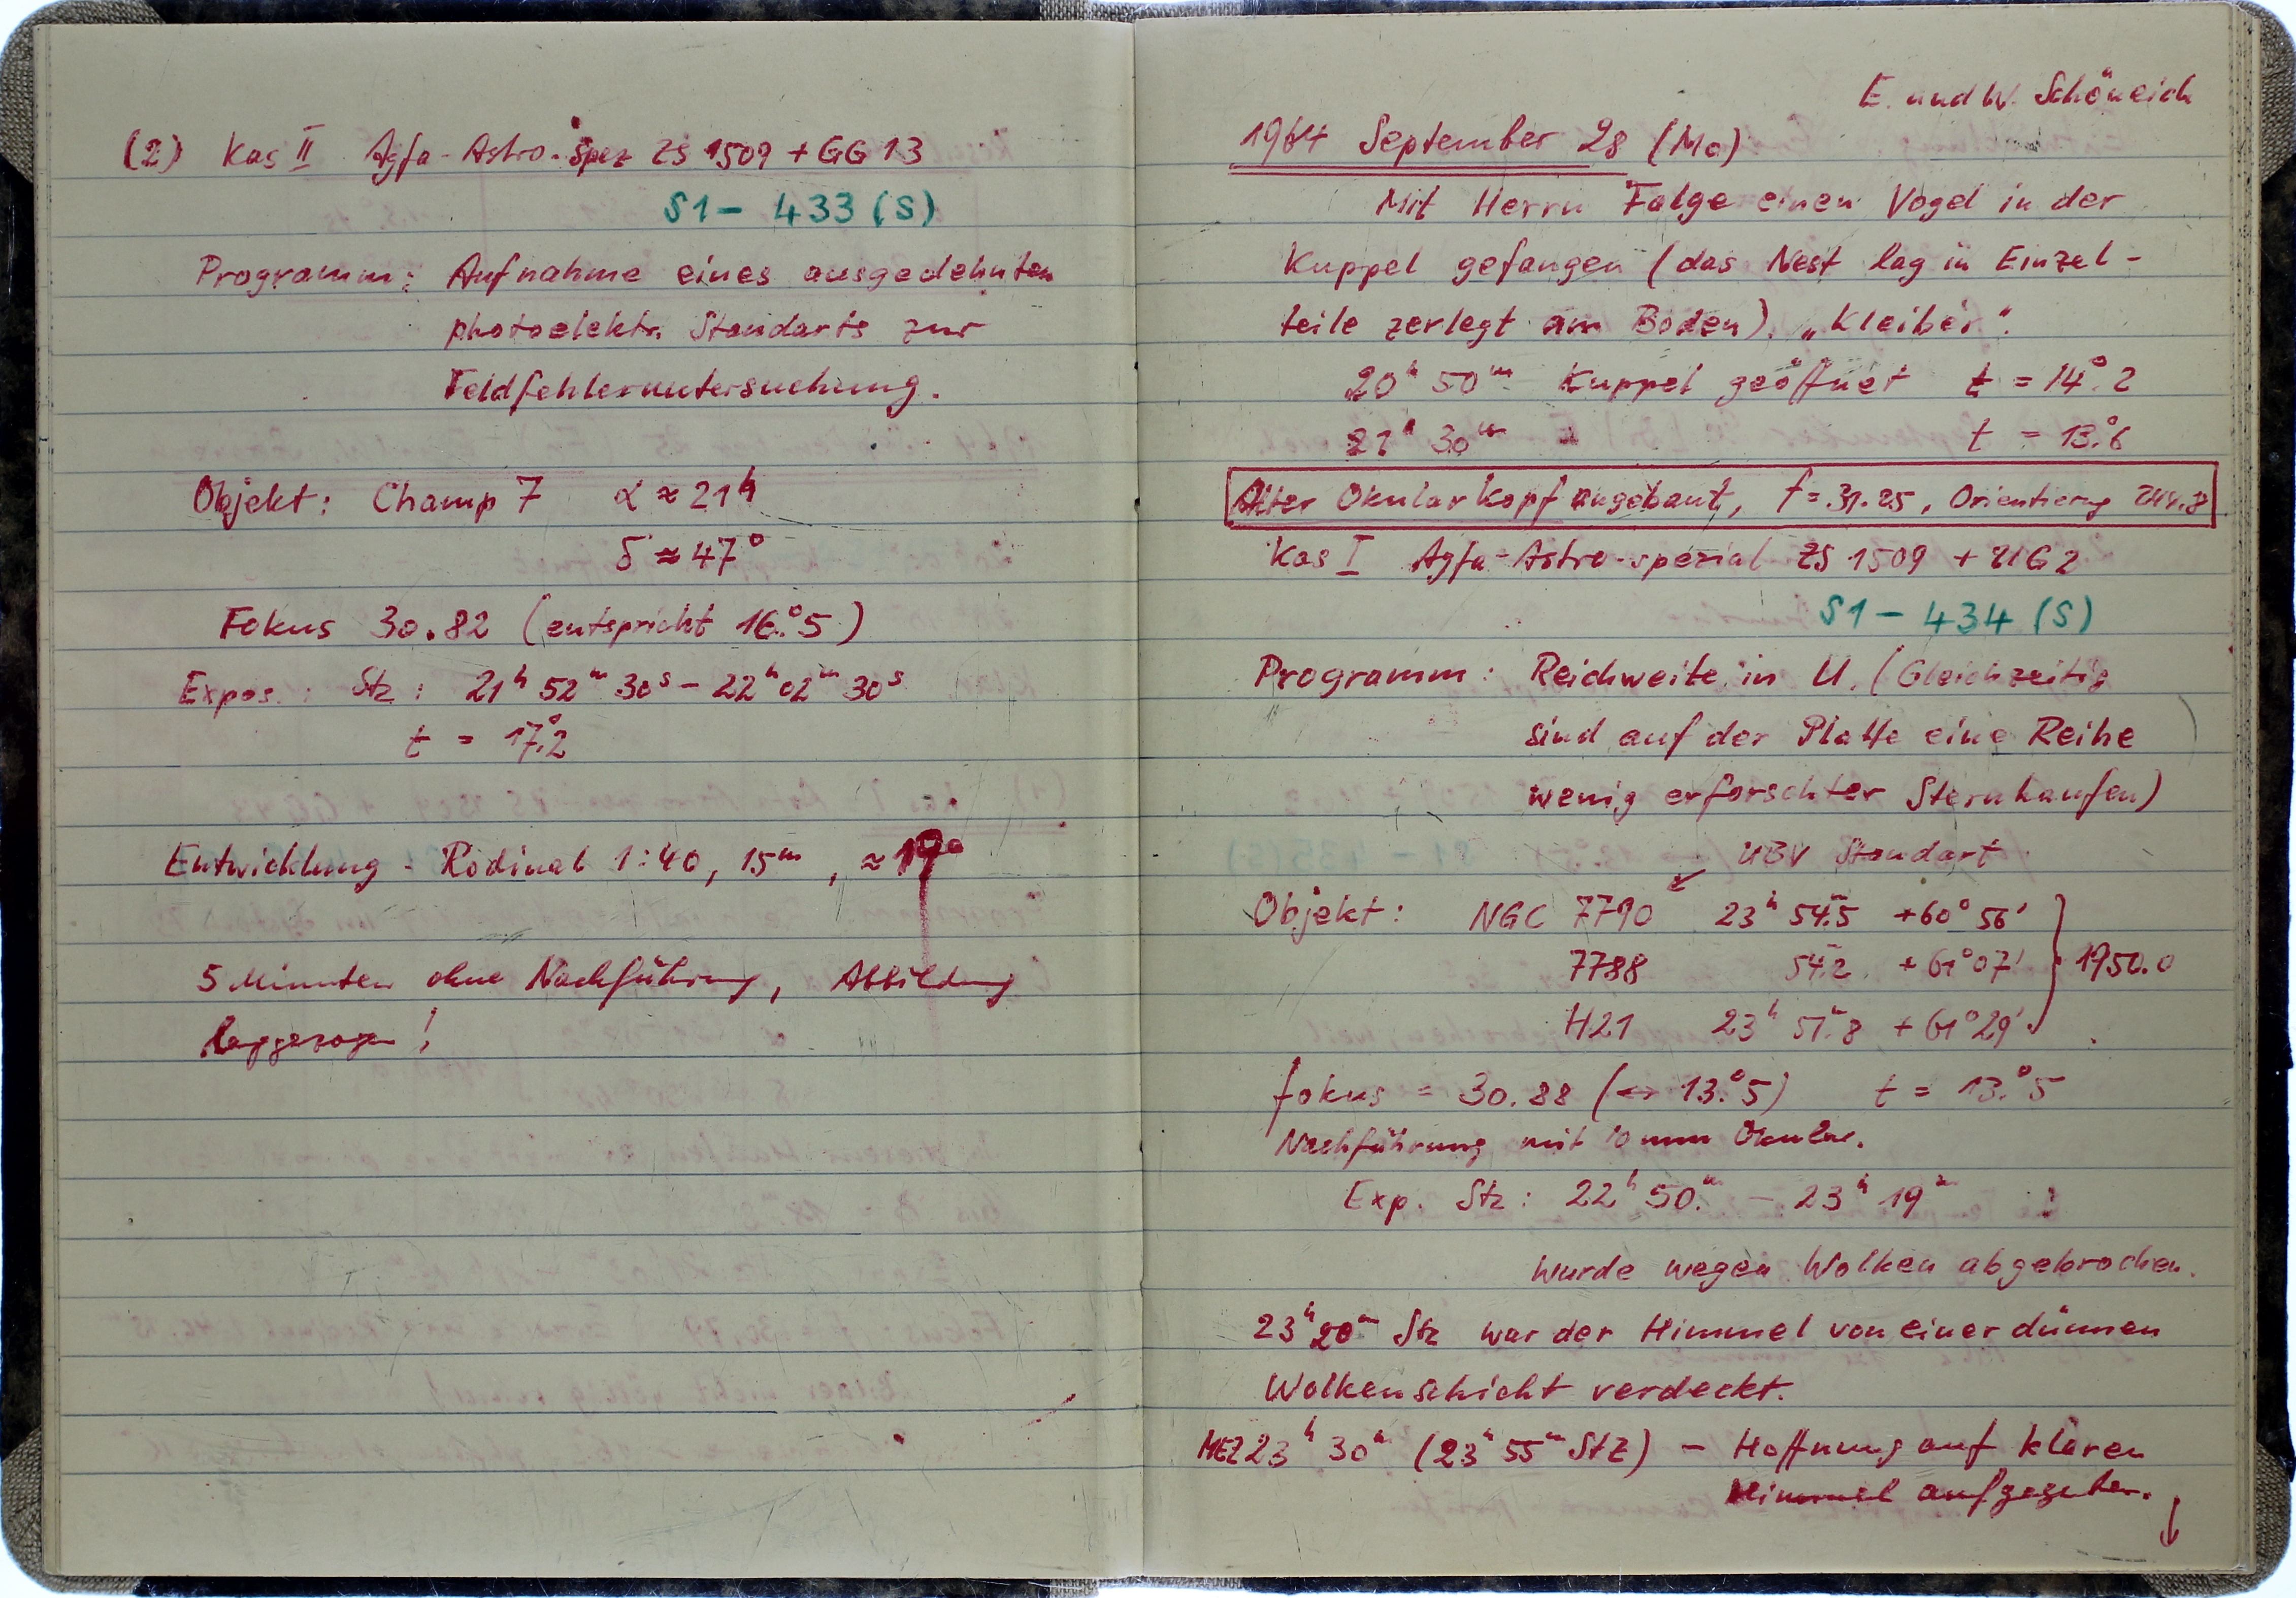 (2) Kas II Agfa-Astro-Spez ZS 1509 + GG 13
S1 – 433 (S)
Programm: Aufnahme eines ausgedehnten
photoelektr. Standarts zur
Feldfehleruntersuchung.
Objekt: Champ 7 α ≈ 21ʰ
δ ≈ 47°
Fokus 30.82 (entspricht 16.°5)
Expos.: Stz: 21ʰ 52ᵐ 30ˢ – 22ʰ 02ᵐ 30ˢ
t = 17.°2
Entwicklung - Rodinal 1:40, 15ᵐ, ≈ 19°
5 Minuten ohne Nachführung, Abbildung
langgezogen!
E. und W. Schöneich
1964 September 28 (Mo)
Mit Herrn Falge einen Vogel in der
Kuppel gefangen (das Nest lag in Einzel-
teile zerlegt am Boden). „Kleiber".
20ʰ 50ᵐ Kuppel geöffnet t = 14.°2
21ʰ 30ᵐ t = 13.°6
Alter Okularkopf angebaut, f = 31.25, Orientierung
Kas I Agfa-Astro-spezial ZS 1509 + UG 2
S1 – 434 (S)
Programm: Reichweite in U. (Gleichzeitig
sind auf der Platte eine Reihe
wenig erforschter Sternhaufen)
↙ UBV Standart
Objekt: NGC 7790 23ʰ 54.ᵐ5 +60° 56'
7788 54.ᵐ2 +61° 07' } 1950.0
H21 23ʰ 51.ᵐ8 +61° 29'
fokus = 30.88 (↔ 13.°5) t = 13.°5
Nachführung mit 10 mm Okular.
Exp. Stz: 22ʰ 50.ᵐ – 23ʰ 19ᵐ
wurde wegen Wolken abgebrochen.
23ʰ 20ᵐ Stz war der Himmel von einer dünnen
Wolkenschicht verdeckt.
MEZ 23ʰ 30ᵐ (23ʰ 55ᵐ StZ) – Hoffnung auf klaren
Himmel aufgegeben.
↓